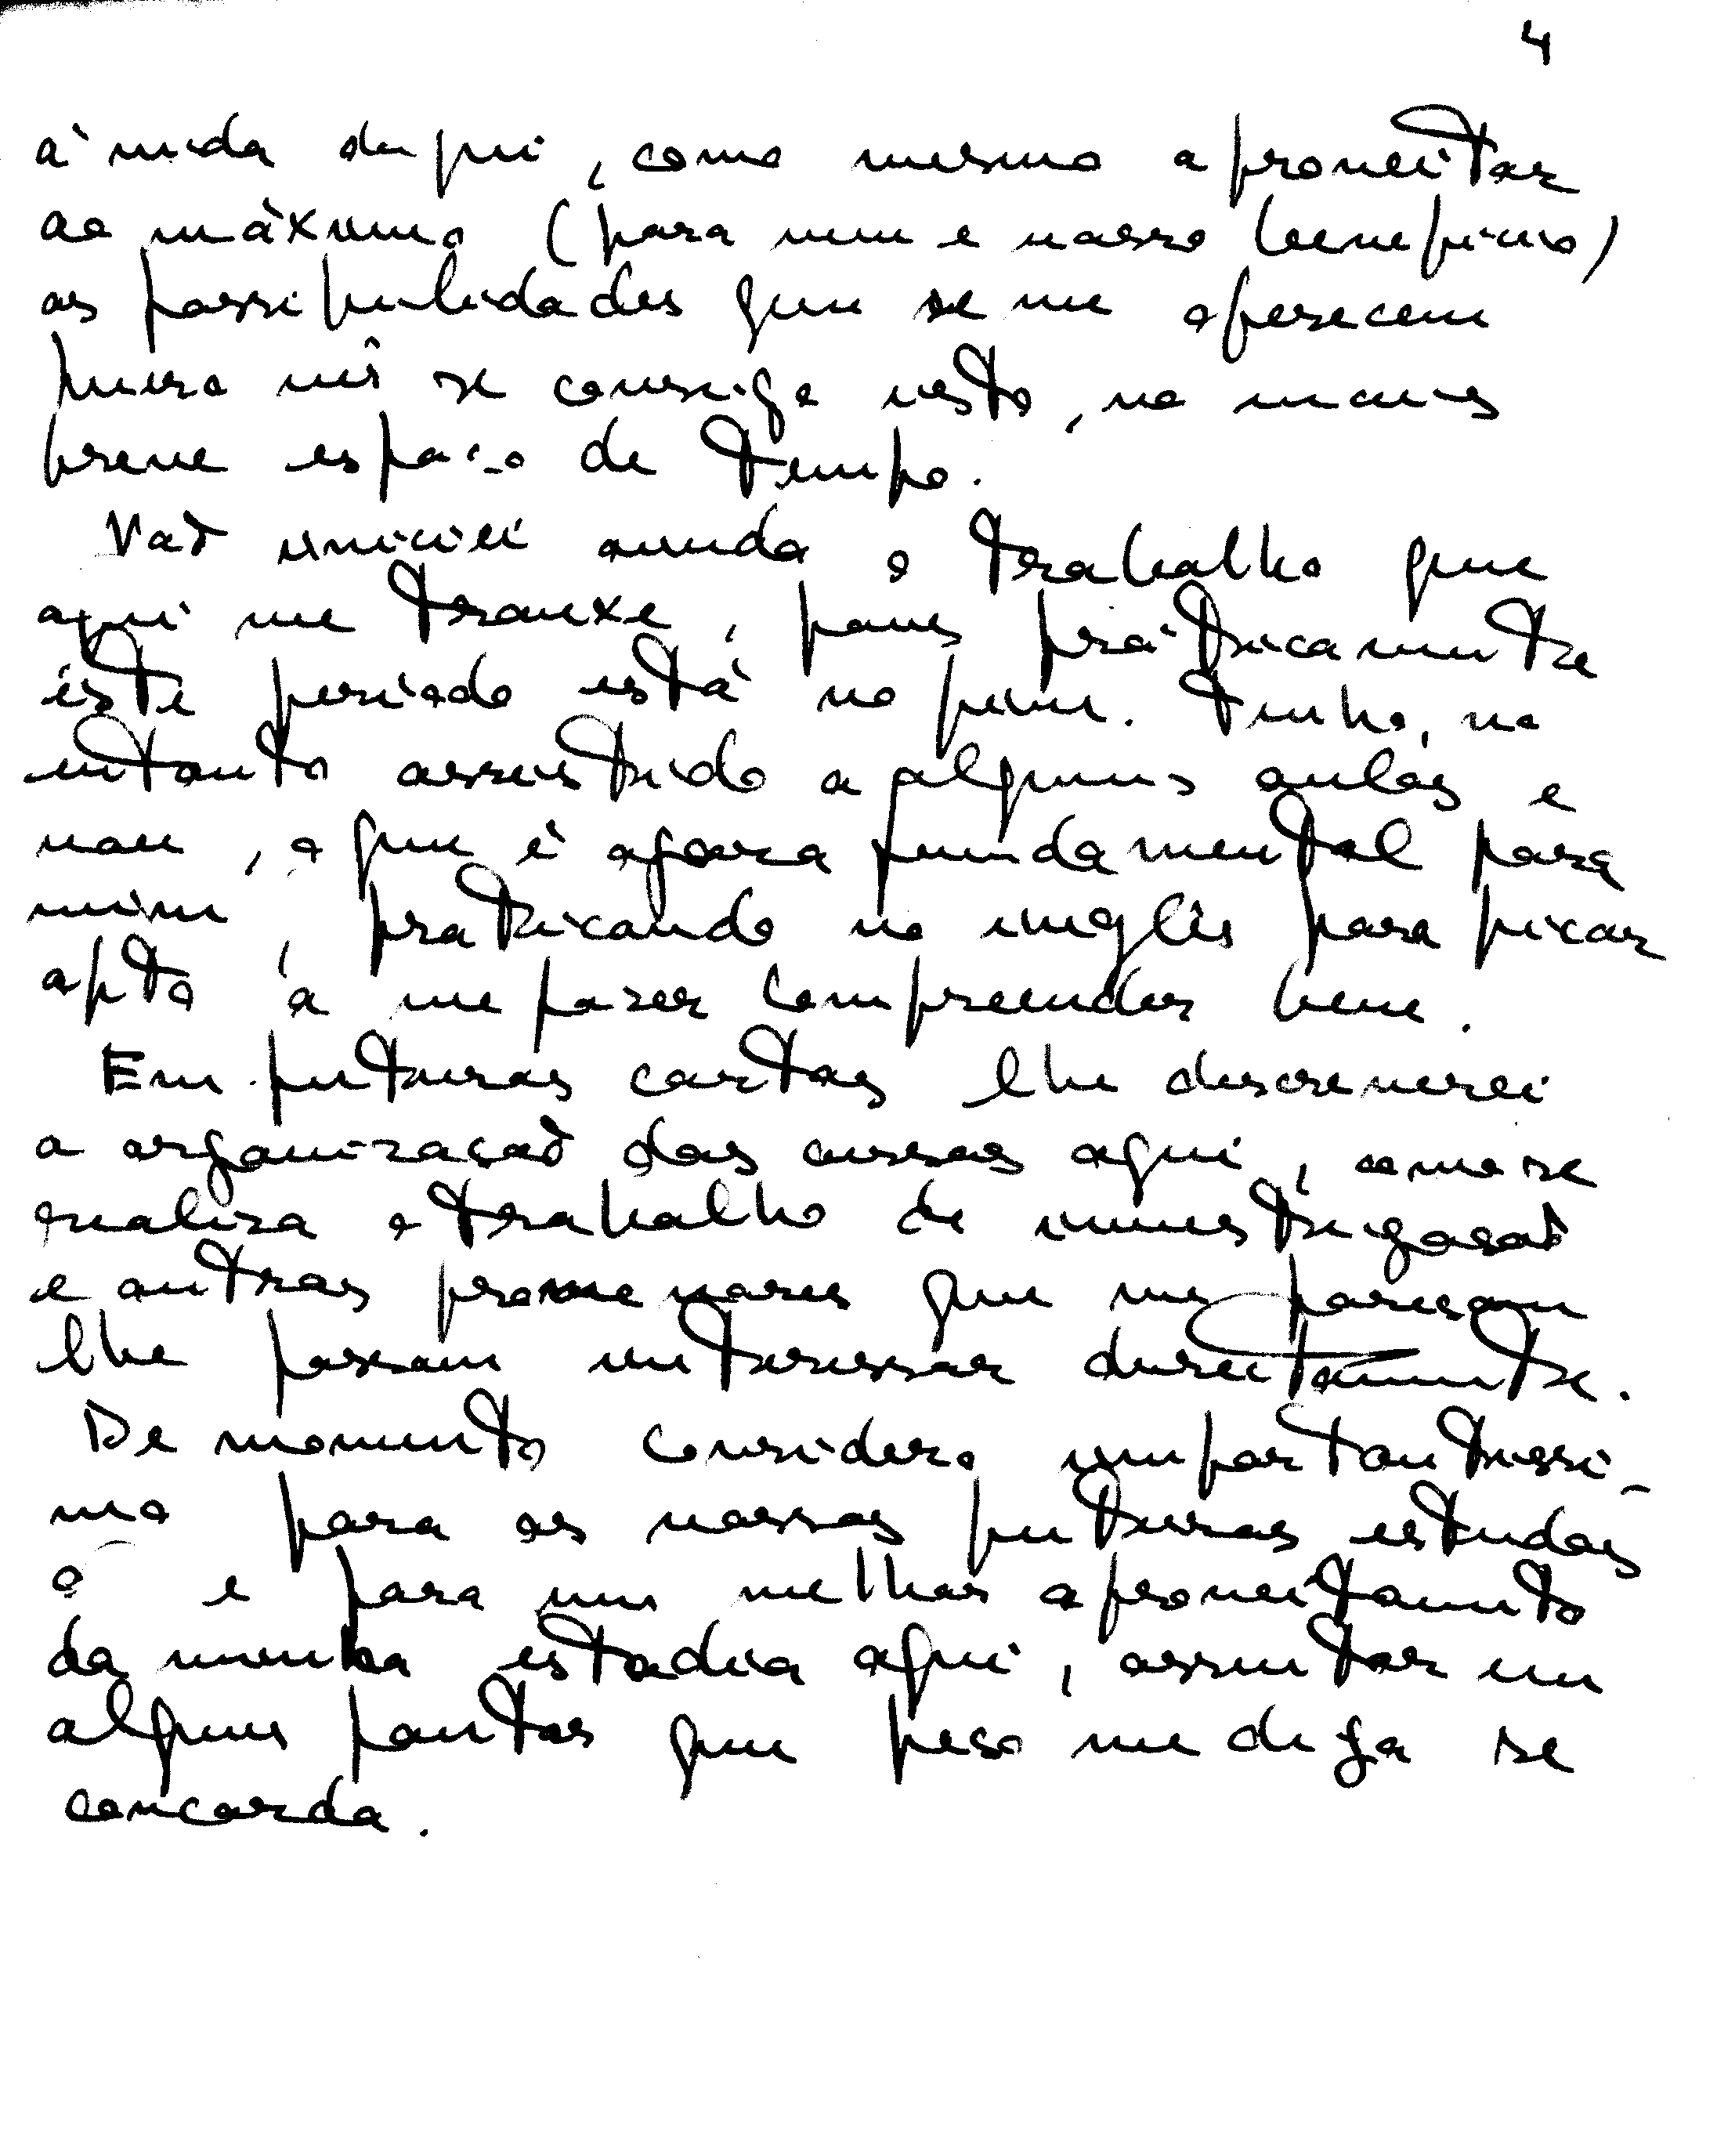 4
à vida daqui, como mesmo aproveitar
ao máximo (para mim e nosso benefício)
as possibilidades que se me oferecem
se consiga isto, no mais
breve espaço de tempo.
Não iniciei ainda o trabalho que
aqui me trouxe, pois práticamente
êste período está no fim. Tenho, no
entanto assistido a algumas aulas e
vou, o que é agora fundamental para
mim, praticando no inglês para ficar
apto a me fazer compreender bem.
Em futuras cartas lhe descreverei
a organização dos cursos aqui, como se
realiza o trabalho de investigação
e outros promenores que me pareçam
lhe possam interessar directamente.
De momento considero importantissi-
mo para os nossos futuros estudos
e para um melhor aproveitamento
da minha estadia aqui, assentar em
alguns pontos que peço me diga se
concorda.